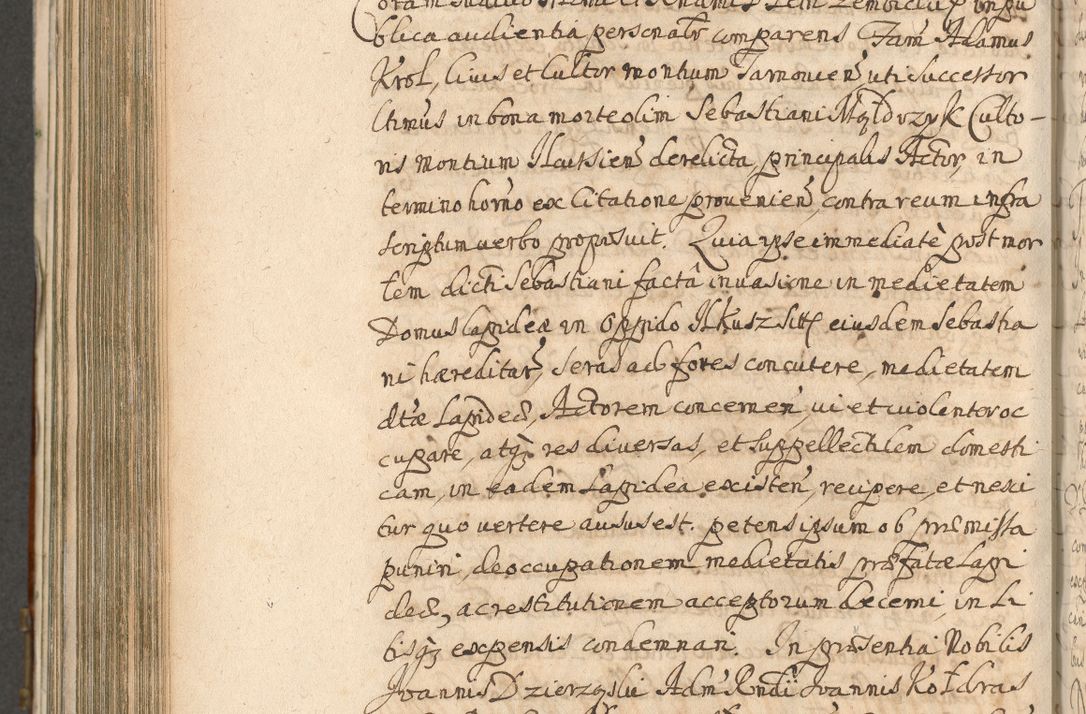 blica audientia personalr comparens Fam Adamus
Krol, Civis et Cultor montium Tarnovien uti Successor
ltimus in bona morte olim Sebastiani Mąldrzyk Culto-
ris montium Ilcussien derelicta, principalis Actor, in
termino horno ex Citatione provenien, contra reum infra
scriptum verbo proposuit. Quia ipse immediatè post mor
tem dicti Sebastiani factâ invasione in medietatem
Domus lapideæ in Oppido Ilkusz sitt eiusdem Sebastia
ni hæreditar, seras ad fores concutere, medietatem
dtæ Lapideæ, Actorem concernen, vi et violenter oc
cupare, atq res diversas, et suppellectilem domesti
cam, in eadem Lapidea existen, recipere, et nesci
tur quo vertere ausus est. petens ipsum ob præmissa
puniri, de occupationem medietatis præfatæ Lapi
deæ, ac restitutionem acceptorum decerni, in Li
bisq expensis condemnari. In præsentia Nobilis
Joannis Dzierzęski Adm Rndi Joannis Kołdras